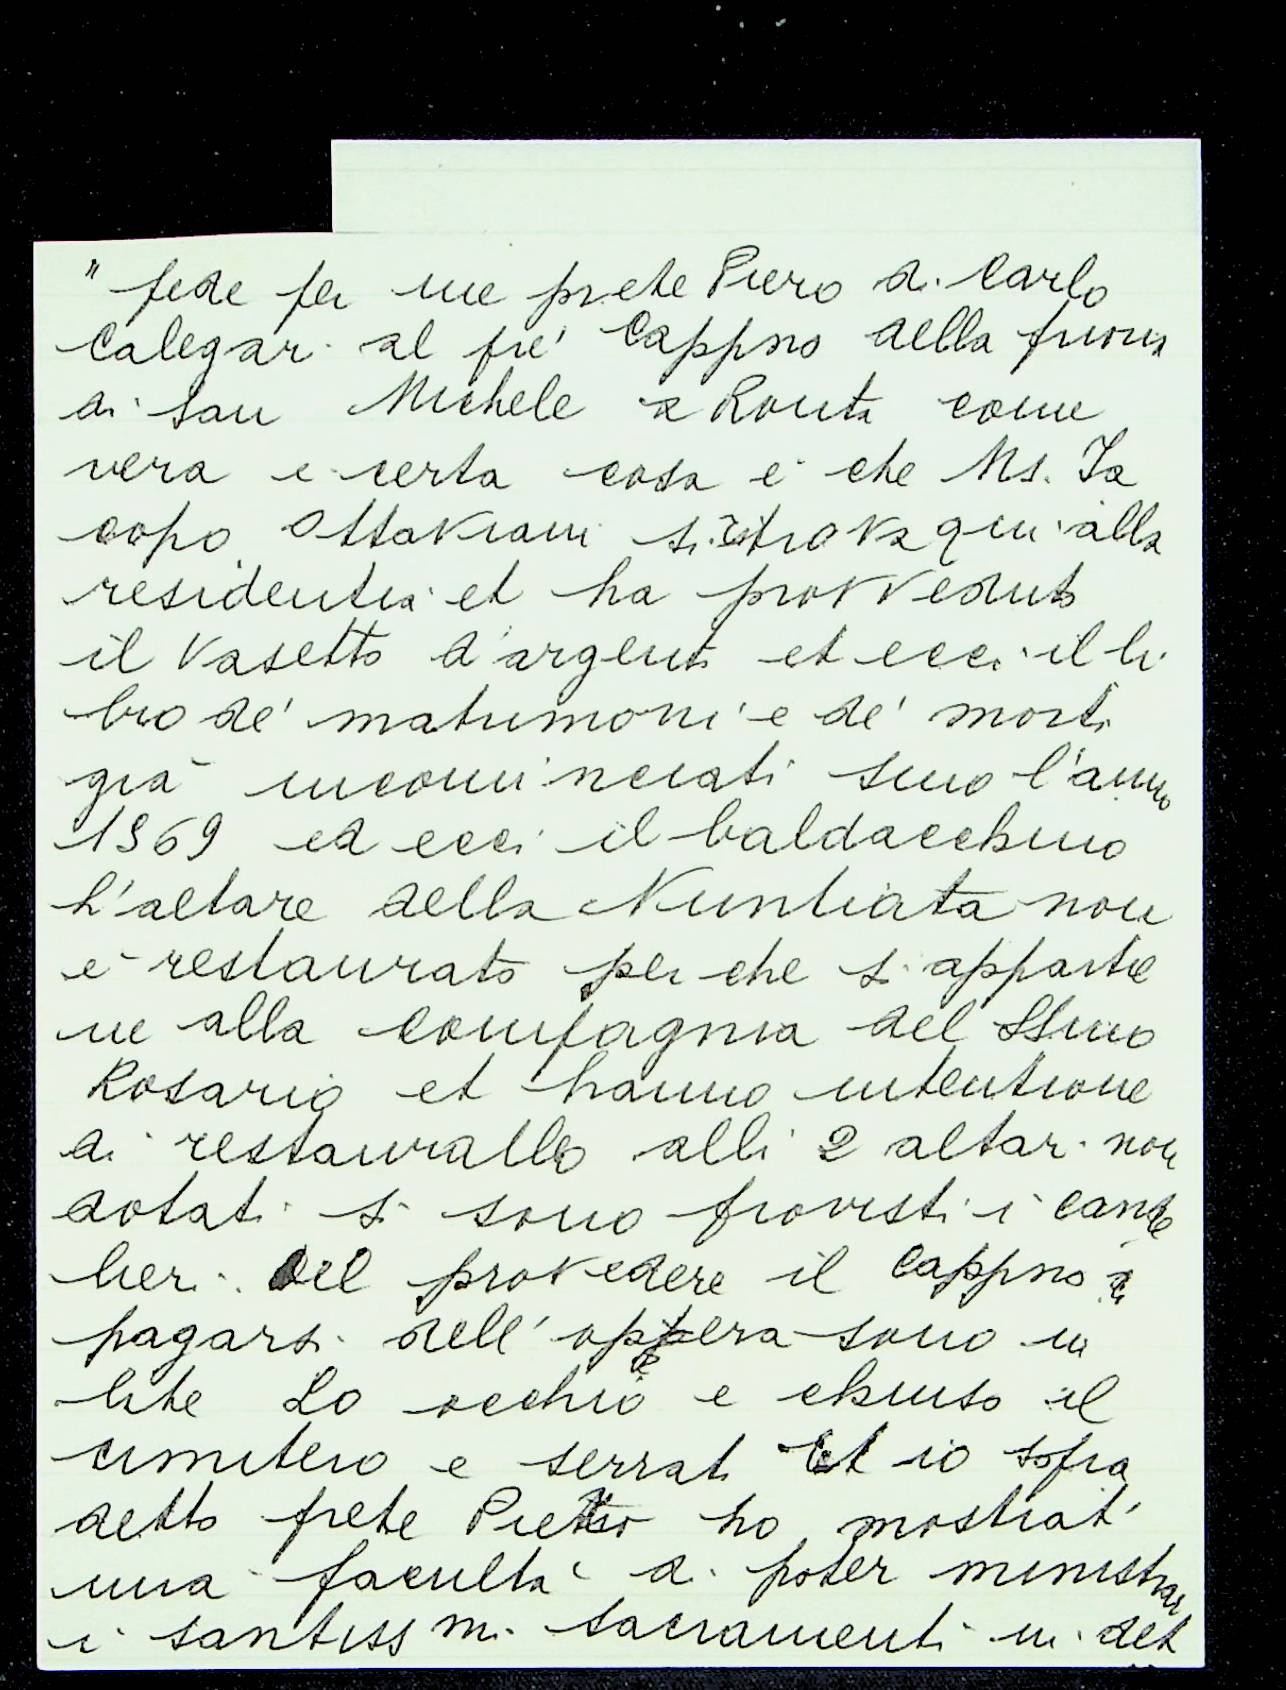 " fede per me prete Piero di Carlo
Calegari al pre' Cappno della prioria
di san Michele a Ronta come
vera e certa cosa è che Ms. Ja
copo Ottaviani si ritrova qui alla
residentia et ha provveduto
il vasetto d'argento et ecci il li
bro de' matrimoni e de' morti
già incominciati sino l'anno
1569 ed ecci il baldacchino
L'altare della Nuntiata non
è restaurato per che si apparte
ne alla Compagnia del SSmo
Rosario et hanno intentione
di restaurallo alli 2 altari non
dotati si sono provisti i cande
lieri. Del provedere il Cappno e
pagarsi dell' oppera sono in
lite Lo occhio e chiuso il
cimitero e serrato Et io sopra
detto prete Pietro ho mostrato
una facultà di poter ministrar
i santissmi sacramenti in det